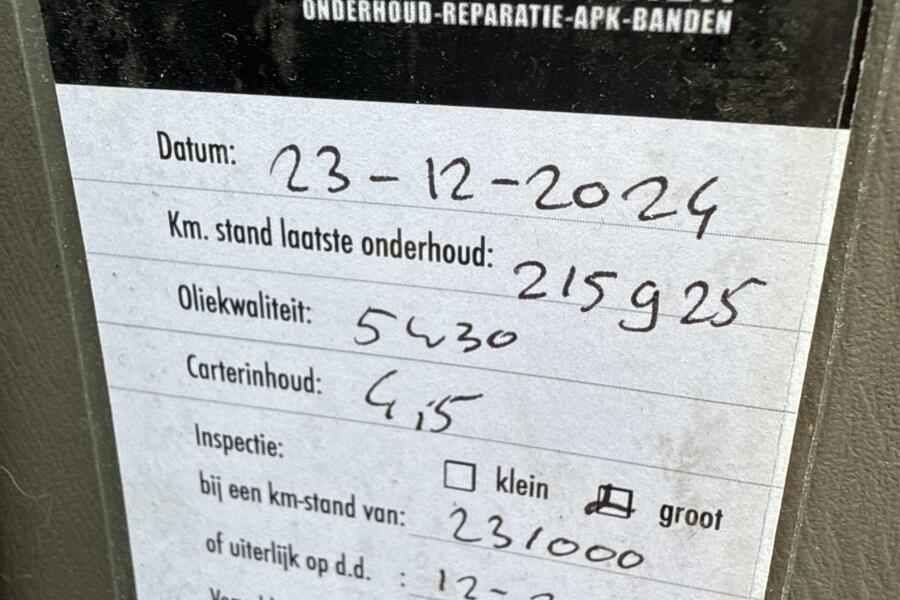 ONDERHOUD-REPARATIE-APK-BANDEN
Datum: 23-12-2024
Km. stand laatste onderhoud: 215925
Oliekwaliteit: 5w30
Carterinhoud: 4,5
Inspectie: klein groot
bij een km-stand van: 231000
of uiterlijk op d.d. : 12-